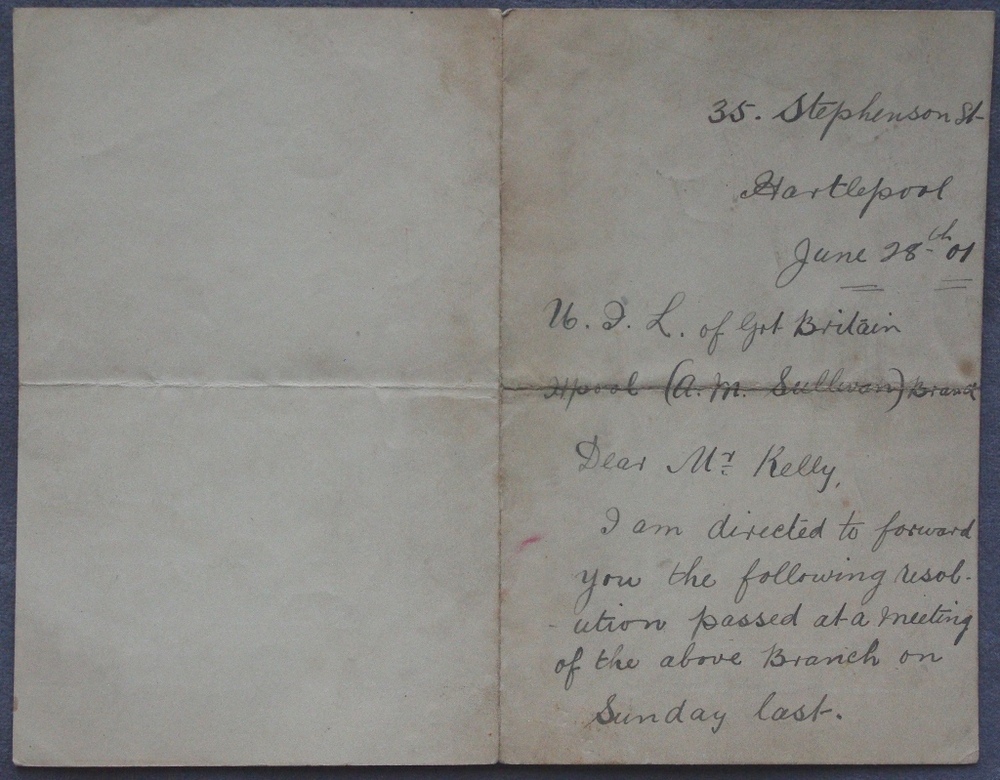 35. Stephenson St
Hartlepool
June 28th 01
U. I. L. of Grt Britain
Hpool (A. M. Sullivan) Branch
Dear Mr Kelly,
I am directed to forward
you the following resol-
-ution passed at a meeting
of the above Branch on
Sunday last.